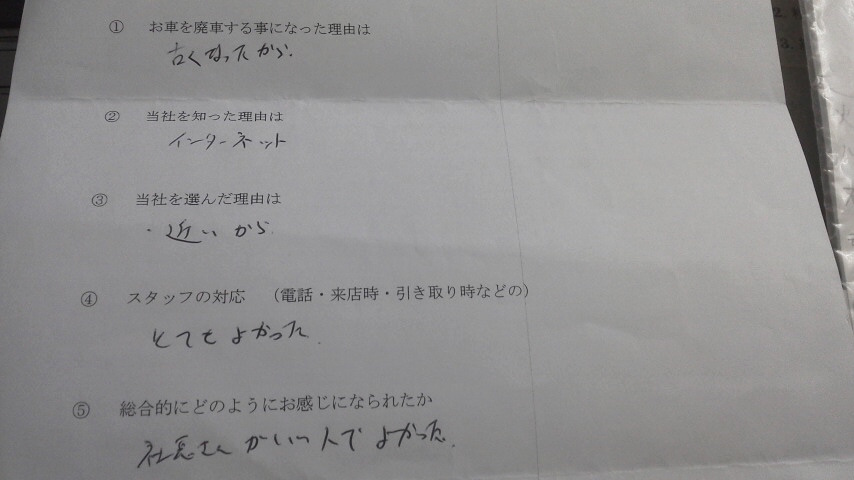 ① お車を廃車する事になった理由は
古くなったから.
② 当社を知った理由は
インターネット
③ 当社を選んだ理由は
・近いから.
④ スタッフの対応 （電話・来店時・引き取り時などの）
とてもよかった.
⑤ 総合的にどのようにお感じになられたか
社長さんがいい人でよかった.